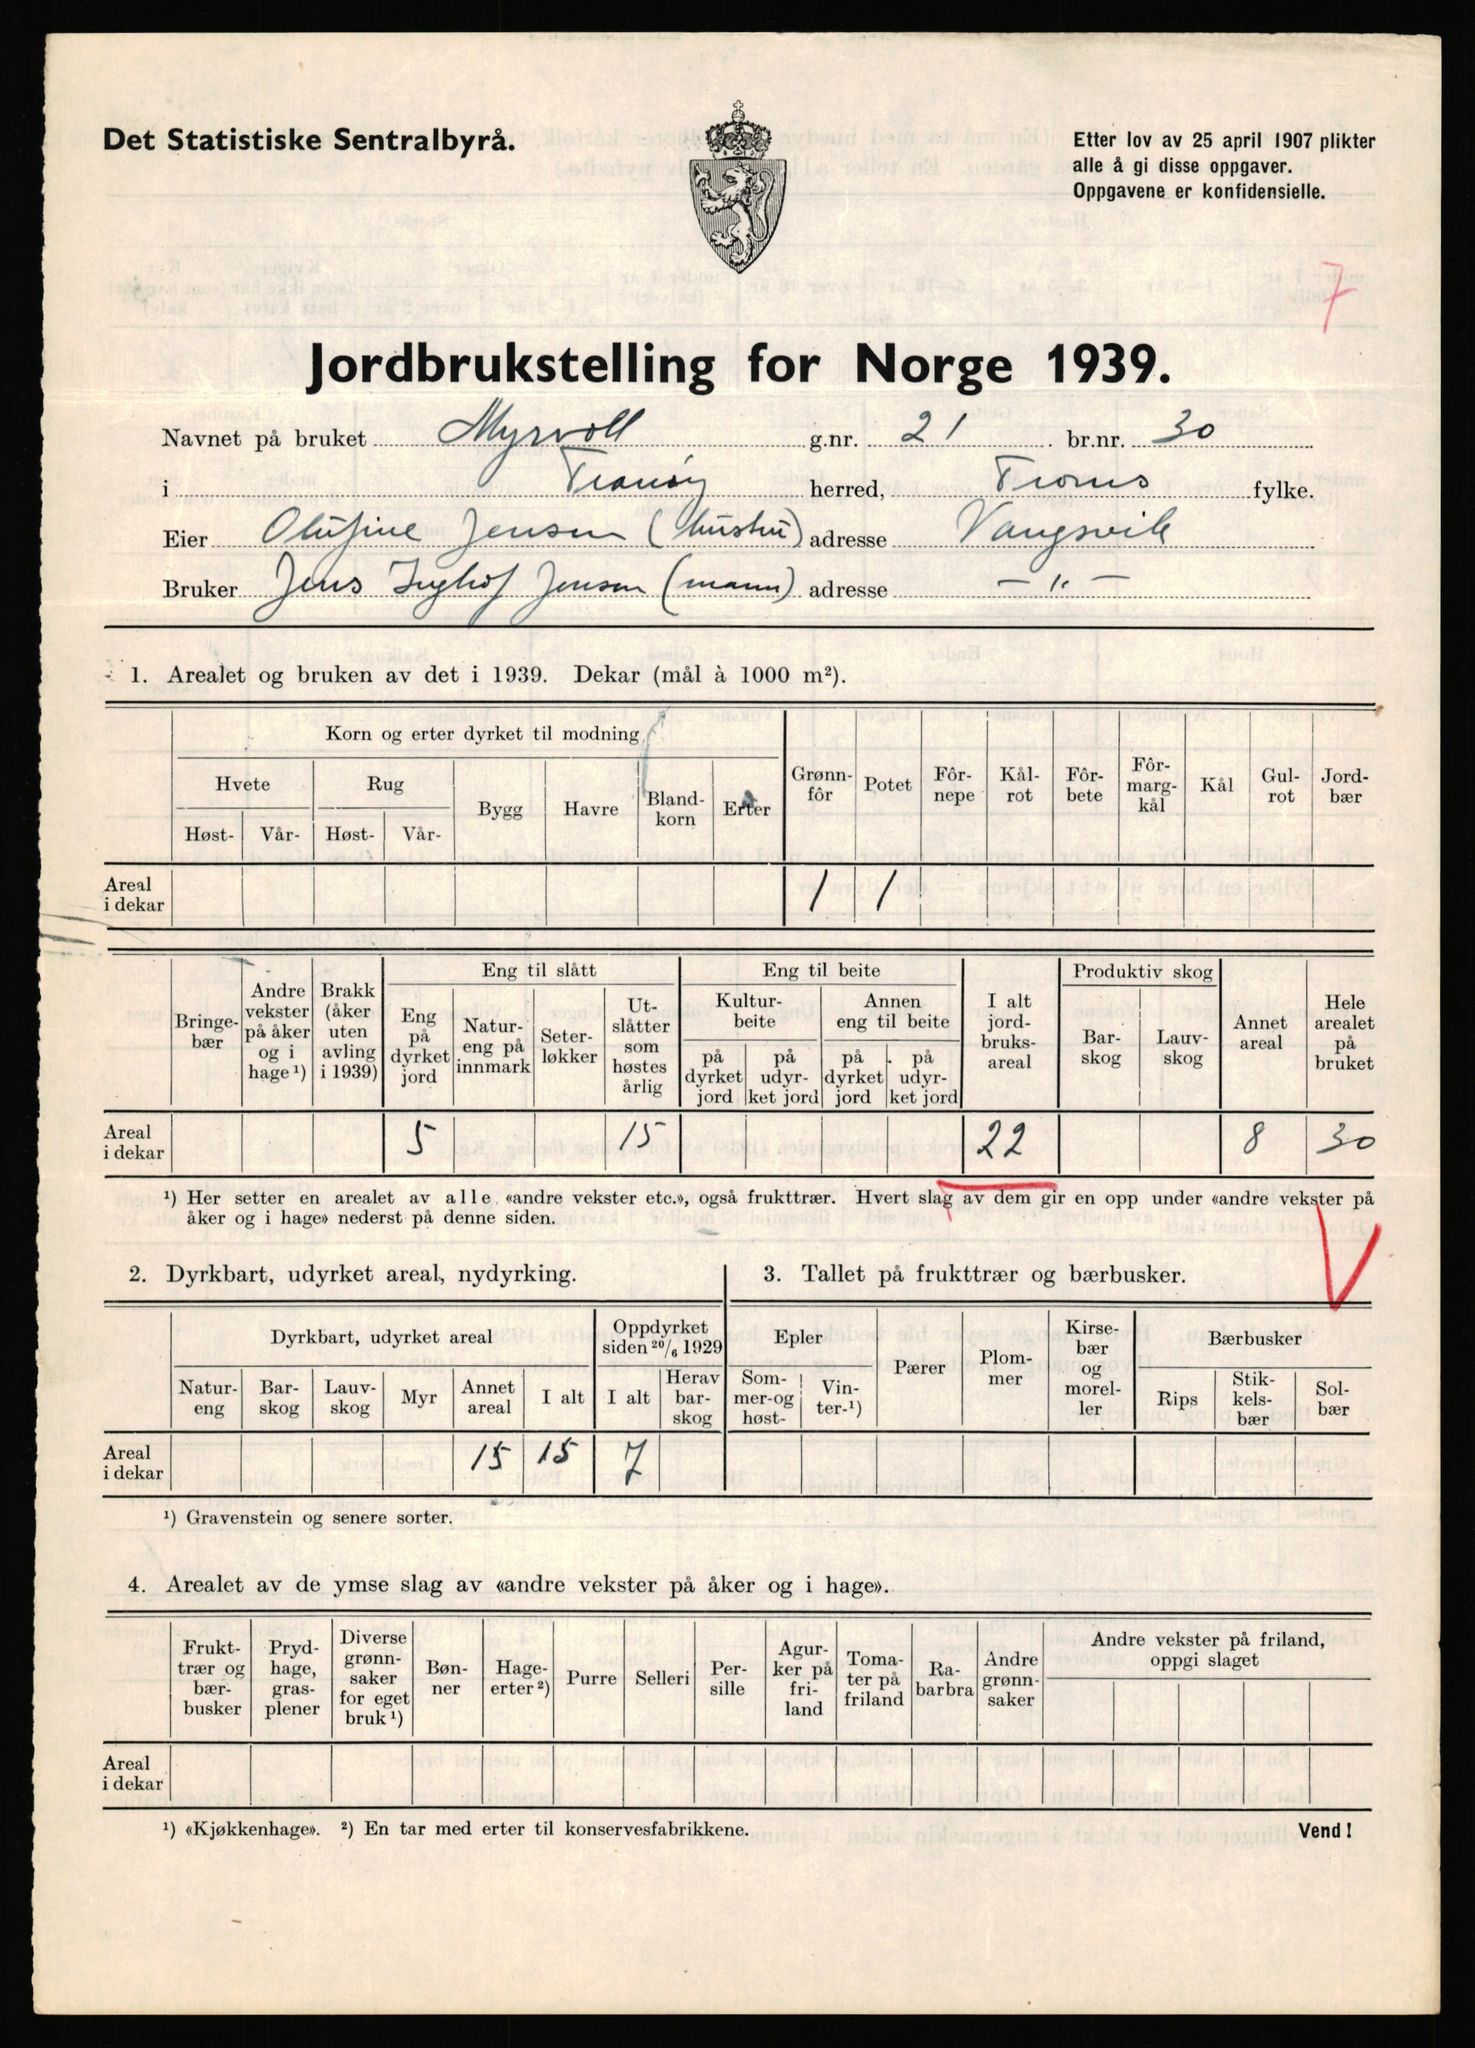 Det Statistiske Sentralbyrå.
Etter lov av 25 april 1907 plikter
alle å gi disse oppgaver.
Oppgavene er konfidensielle.
7
Jordbrukstelling for Norge 1939.
Navnet på bruket Myrvoll g.nr. 21 br.nr. 30
i Tranøy herred, Troms fylke.
Eier Olufine Jensen (hustru) adresse Vangsvik
Bruker Jens Inghof Jensen (mann) adresse — " —
1. Arealet og bruken av det i 1939. Dekar (mål à 1000 m²).
Korn og erter dyrket til modning
Hvete Rug Bygg Havre Bland-korn Erter
Høst- Vår- Høst- Vår-
Grønn-fôr Potet Fôr-nepe Kål-rot Fôr-bete Fôr-marg-kål Kål Gul-rot Jord-bær
Areal i dekar 1 1
Bringe-bær Andre vekster på åker og i hage ¹) Brakk (åker uten avling i 1939)
Eng til slått
Eng på dyrket jord Natur-eng på innmark Seter-løkker Ut-slåtter som høstes årlig
Eng til beite
Kultur-beite Annen eng til beite
på dyrket jord på udyr-ket jord på dyrket jord på udyr-ket jord
I alt jord-bruks-areal
Produktiv skog
Bar-skog Lauv-skog
Annet areal Hele arealet på bruket
Areal i dekar 5 15 22 8 30
¹) Her setter en arealet av alle «andre vekster etc.», også frukttrær. Hvert slag av dem gir en opp under «andre vekster på
åker og i hage» nederst på denne siden.
2. Dyrkbart, udyrket areal, nydyrking.
Dyrkbart, udyrket areal Oppdyrket siden 20/6 1929
Natur-eng Bar-skog Lauv-skog Myr Annet areal I alt I alt Herav bar-skog
Areal i dekar 15 15 7
¹) Gravenstein og senere sorter.
3. Tallet på frukttrær og bærbusker.
Epler Pærer Plom-mer Kirse-bær og morel-ler Bærbusker
Som-mer-og høst- Vin-ter-¹) Rips Stik-kels-bær Sol-bær
4. Arealet av de ymse slag av «andre vekster på åker og i hage».
Frukt-trær og bær-busker Pryd-hage, gras-plener Diverse grønn-saker for eget bruk ¹) Bøn-ner Hage-erter ²) Purre Selleri Per-sille Agur-ker på fri-land Toma-ter på friland Ra-barbra Andre grønn-saker Andre vekster på friland, oppgi slaget
Areal i dekar
¹) «Kjøkkenhage». ²) En tar med erter til konservesfabrikkene.
Vend!